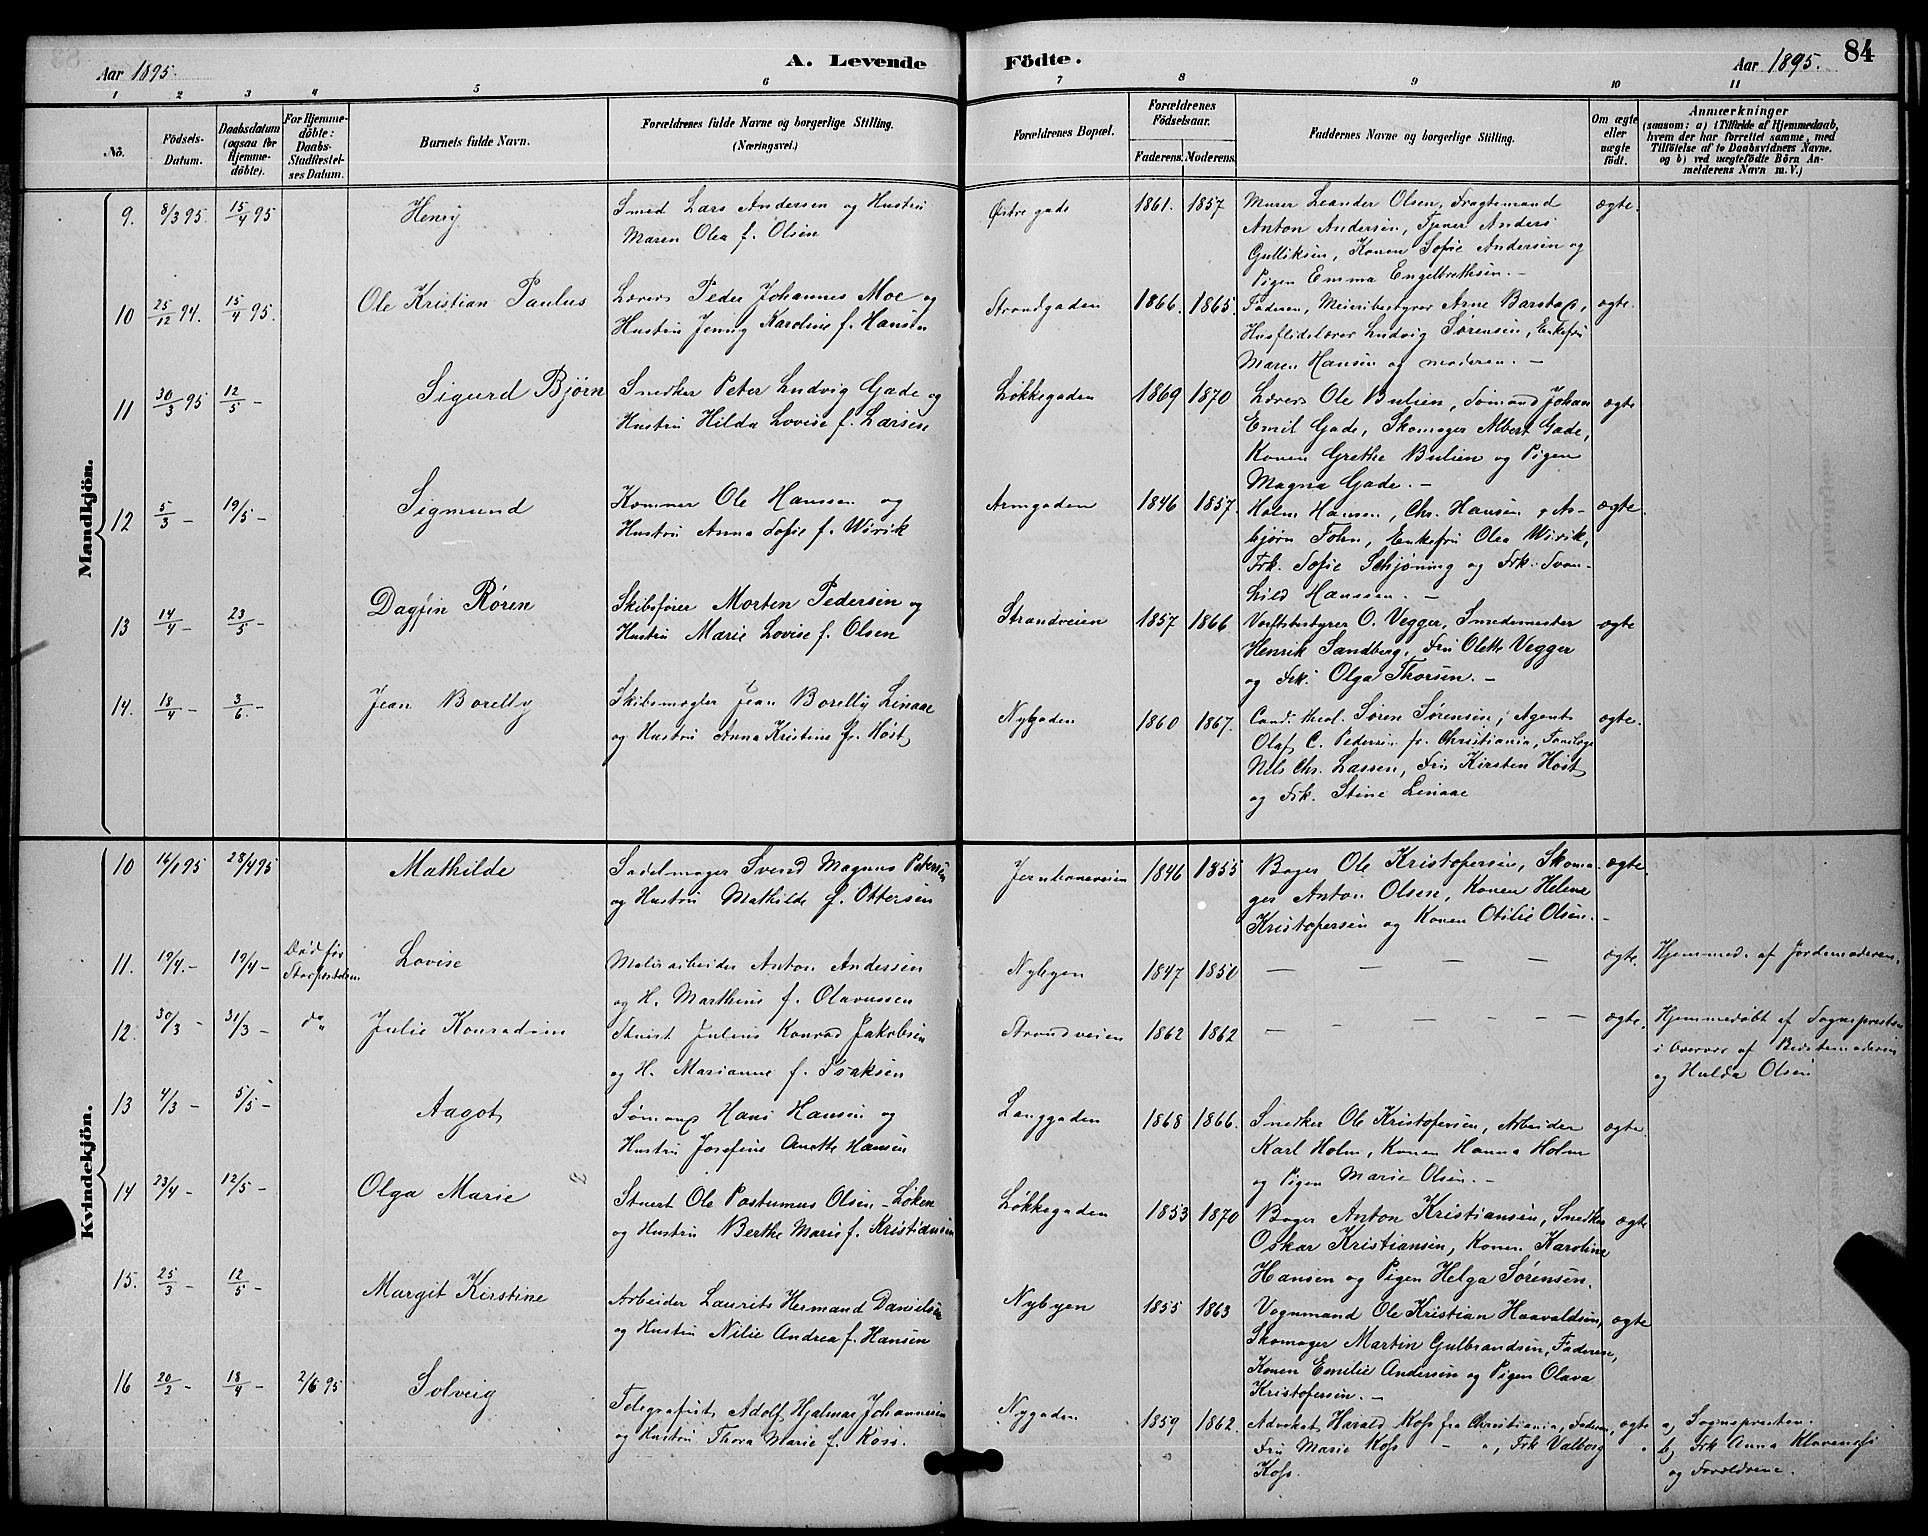 Aar 1895.
A. Levende Födte.
Aar 1895. 84
1 2 3 4 5 6 7 8 9 10 11
No.
Födsels-Datum.
Daabsdatum (ogsaa for Hjemme-döbte).
For Hjemme-döbte: Daabs-Stadfæstel-ses Datum.
Barnets fulde Navn.
Forældrenes fulde Navne og borgerlige Stilling. (Næringsvei.)
Forældrenes Bopæl.
Forældrenes Födselsaar.
Faderens. Moderens.
Faddernes Navne og borgerlige Stilling.
Om ægte eller uægte födt.
Anmærkninger
(saasom: a) i Tilfælde af Hjemmedaab, hvem der har forrettet samme, med Tilföielse af to Daabsvidners Navne. og b) ved uægtefödte Börn An-melderens Navn m. V.)
Mandkjön.
9. 8/3 95. 15/4 95 Henry
Smed Lars Andersen og Hustru
Maren Olea f. Olsen
Østre gade 1861. 1857
Murer Leander Olsen, Fragtemand
Anton Andersen, Tjener Anders
Gulliksen, Konen Sofie Andersen og
Pigen Emma Engelbrethsen. –
ægte.
10 25/12 94. 15/4 95. Ole Kristian Paulus
Lærer Peder Johannes Moe og
Hustru Jenny Karoline f. Hansen
Strandgaden 1866. 1865.
Faderen, Meieribestyrer Arne Barstad,
Husflidslærer Ludvig Sørensen, Enkefru
Maren Hansen og moderen. –
ægte.
11 30/3 95 12/5 – Sigurd Bjørn
Snedker Peter Ludvig Gade og
Hustru Hilda Lovise f. Larsen
Løkkegaden 1869 1870
Lærer Ole Bulien, Sømand Johan
Emil Gade, Skomager Albert Gade,
Konen Grethe Bulien og Pigen
Magna Gade. –
ægte
12 5/3 – 19/5 – Sigmund
Kommer Ole Hanssen og
Hustru Anna Sofie f. Wirik
Armgaden 1846 1857.
Holm Hansen, Chr. Hansen, As-
bjørn Fohn, Enkefru Olea Wirik,
Frk. Sofie Schjøning og Frk. Svan-
hild Hanssen. –
ægte.
13 14/4 – 23/5 – Dagfin Røren
Skibsfører Morten Pedersen og
Hustru Marie Lovise f. Olsen
Strandveien 1857 1866
Verftsbestyrer O. Vegger, Smedemester
Henrik Sandberg, Fru Olette Vegger
og Frk. Olga Thorsen. –
ægte
14. 18/4 – 3/6. – Jean Borelly
Skibsmægler Jean Borelly Linaae
og Hustru Anna Kristine f. Høst
Nygaden 1860 1867.
Cand. theol. Søren Sørensen, Agent
Olaf C. Pedersen fr. Christiania, Tandlæge
Nils Chr. Lassen, Fru Kirsten Høst
og Frk. Stine Linaae
ægte.
Kvindekjön.
10 16/1 95 28/4 95 Mathilde
Sadelmager Svend Magnus Petersen
og Hustru Mathilde f. Ottersen
Jernbaneveien 1846 1855
Bager Ole Kristofersen, Skoma-
ger Anton Olsen, Konen Helene
Kristofersen og Konen Otilie Olsen. –
ægte.
11. 19/4. – 19/4 – Død før Stadfæstelsen Lovise
Anton Andersen
og H. Marthine f. Olavessen
Nybyen 1847 1850
– – – –
ægte. Hjemmed. af Jordemoderen.
12. 30/3 – 31/3 – do Julie Konradsen
Stuert Julius Konrad Jakobsen
og H. Marianne f. Isaksen
Strandveien 1862 1862
– – – – – – –
ægte. Hjemmedøbt af Sognepresten
i Overvær af Bedstemoderen
og Hulda Olsen
13 4/3 – 5/5 – Aagot
Sømand Hans Hansen og
Hustru Josefine Anette Hansen
Langgaden 1868 1866.
Snedker Ole Kristofersen, Arbeider
Karl Holm, Konen Hanna Holm
og Pigen Marie Olsen. –
ægte.
14 23/4 – 12/5 – Olga Marie
Stuert Ole Postumus Olsen – Løken
og Hustru Berthe Marie f. Kristiansen
Løkkegaden 1853 1870
Bager Anton Kristiansen, Snedker
Oskar Kristiansen, Konen Karoline
Hansen og Pigen Helga Sørensen.
ægte
15. 25/3 – 12/5 – Margit Kirstine
Arbeider Laurits Hermand Danielsen
og Hustru Nilie Andrea f. Hansen
Nybyen 1855 1863
Vognmand Ole Kristian Haavaldsen,
Skomager Martin Gulbrandsen, Faderen,
Konen Emilie Andersen og Pigen Olava
Kristofersen. –
ægte
16 20/2 – 18/4 – 2/6 95 Solveig
Telegrafist Adolf Hjalmar Johannesen
og Hustru Thora Marie f. Koss.
Nygaden 1859 1862.
Advokat Harald Koss fra Christiania, Faderen,
Fru Marie Koss – „, Frk Valborg
Koss.
ægte
a) Sognepresten.
b) Frk Anna
og Forældrene.